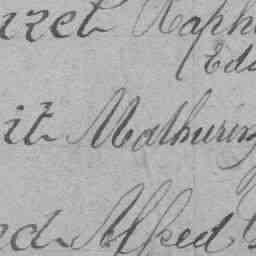 zzet Raph
(Edi
it Mathurin
ed Alfred